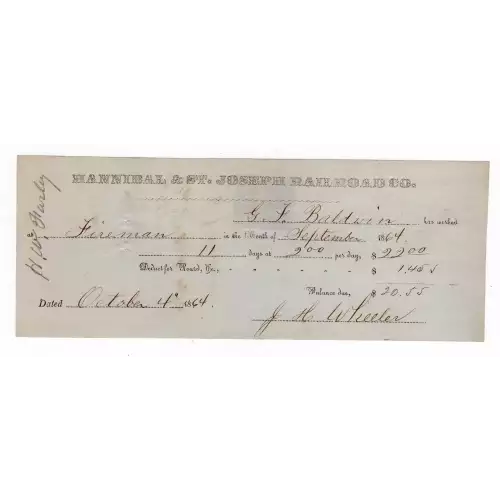 HANNIBAL & ST. JOSEPH RAILROAD CO.
G. F. Baldwin has worked
as Fireman in the Month of September 1864,
11 days at 200 per day, $ 22.00
Deduct for Board, &c., $ 1.45
Balance due, $ 20.55
Dated October 4" 1864.
J H Wheeler